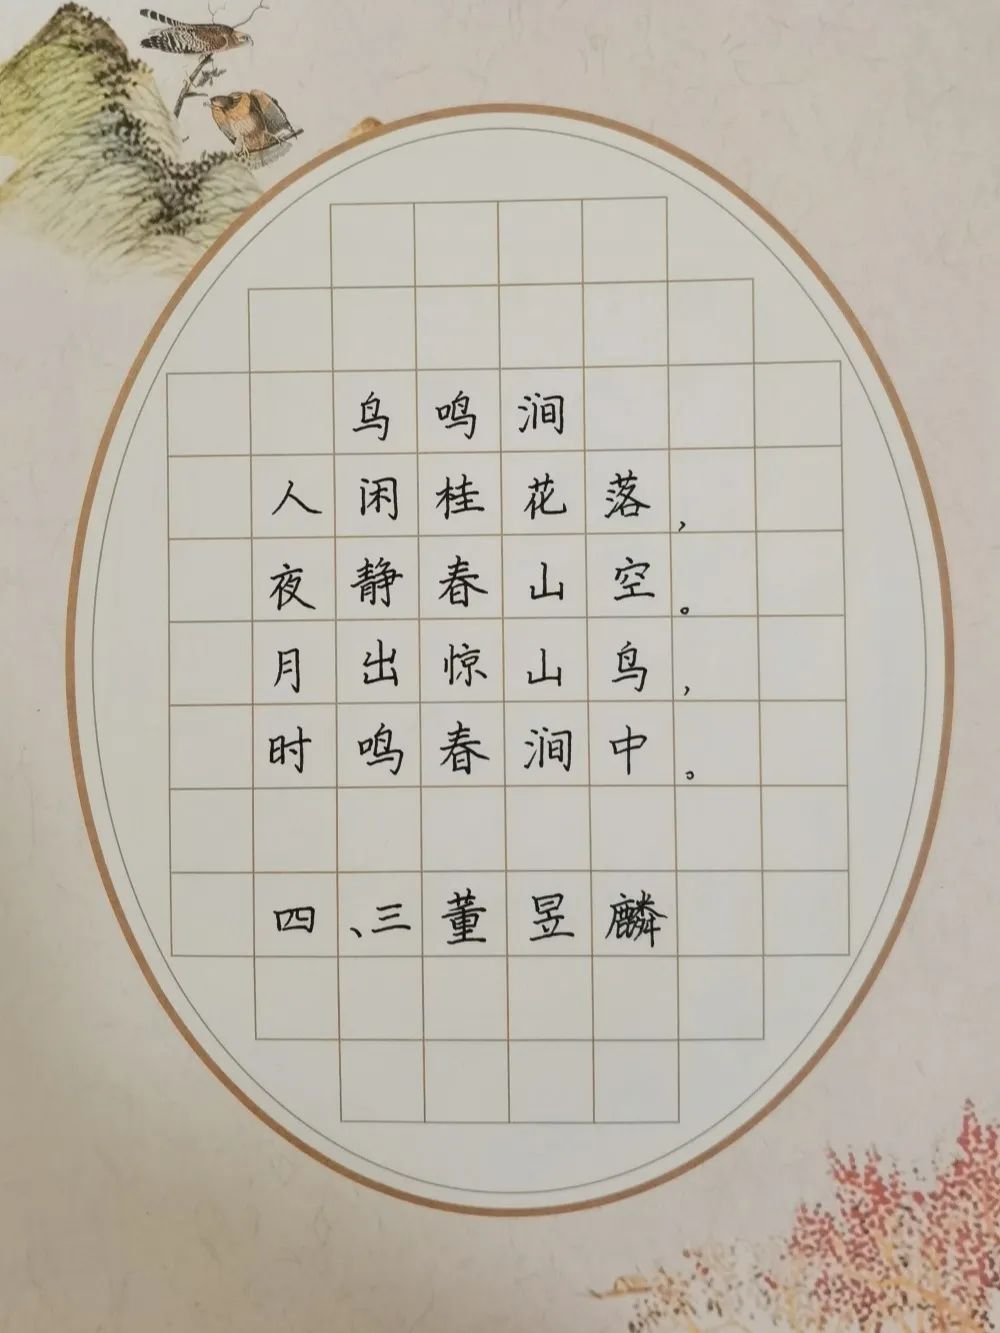 鸟鸣涧
人闲桂花落，
夜静春山空。
月出惊山鸟，
时鸣春涧中。
四、三董昱麟